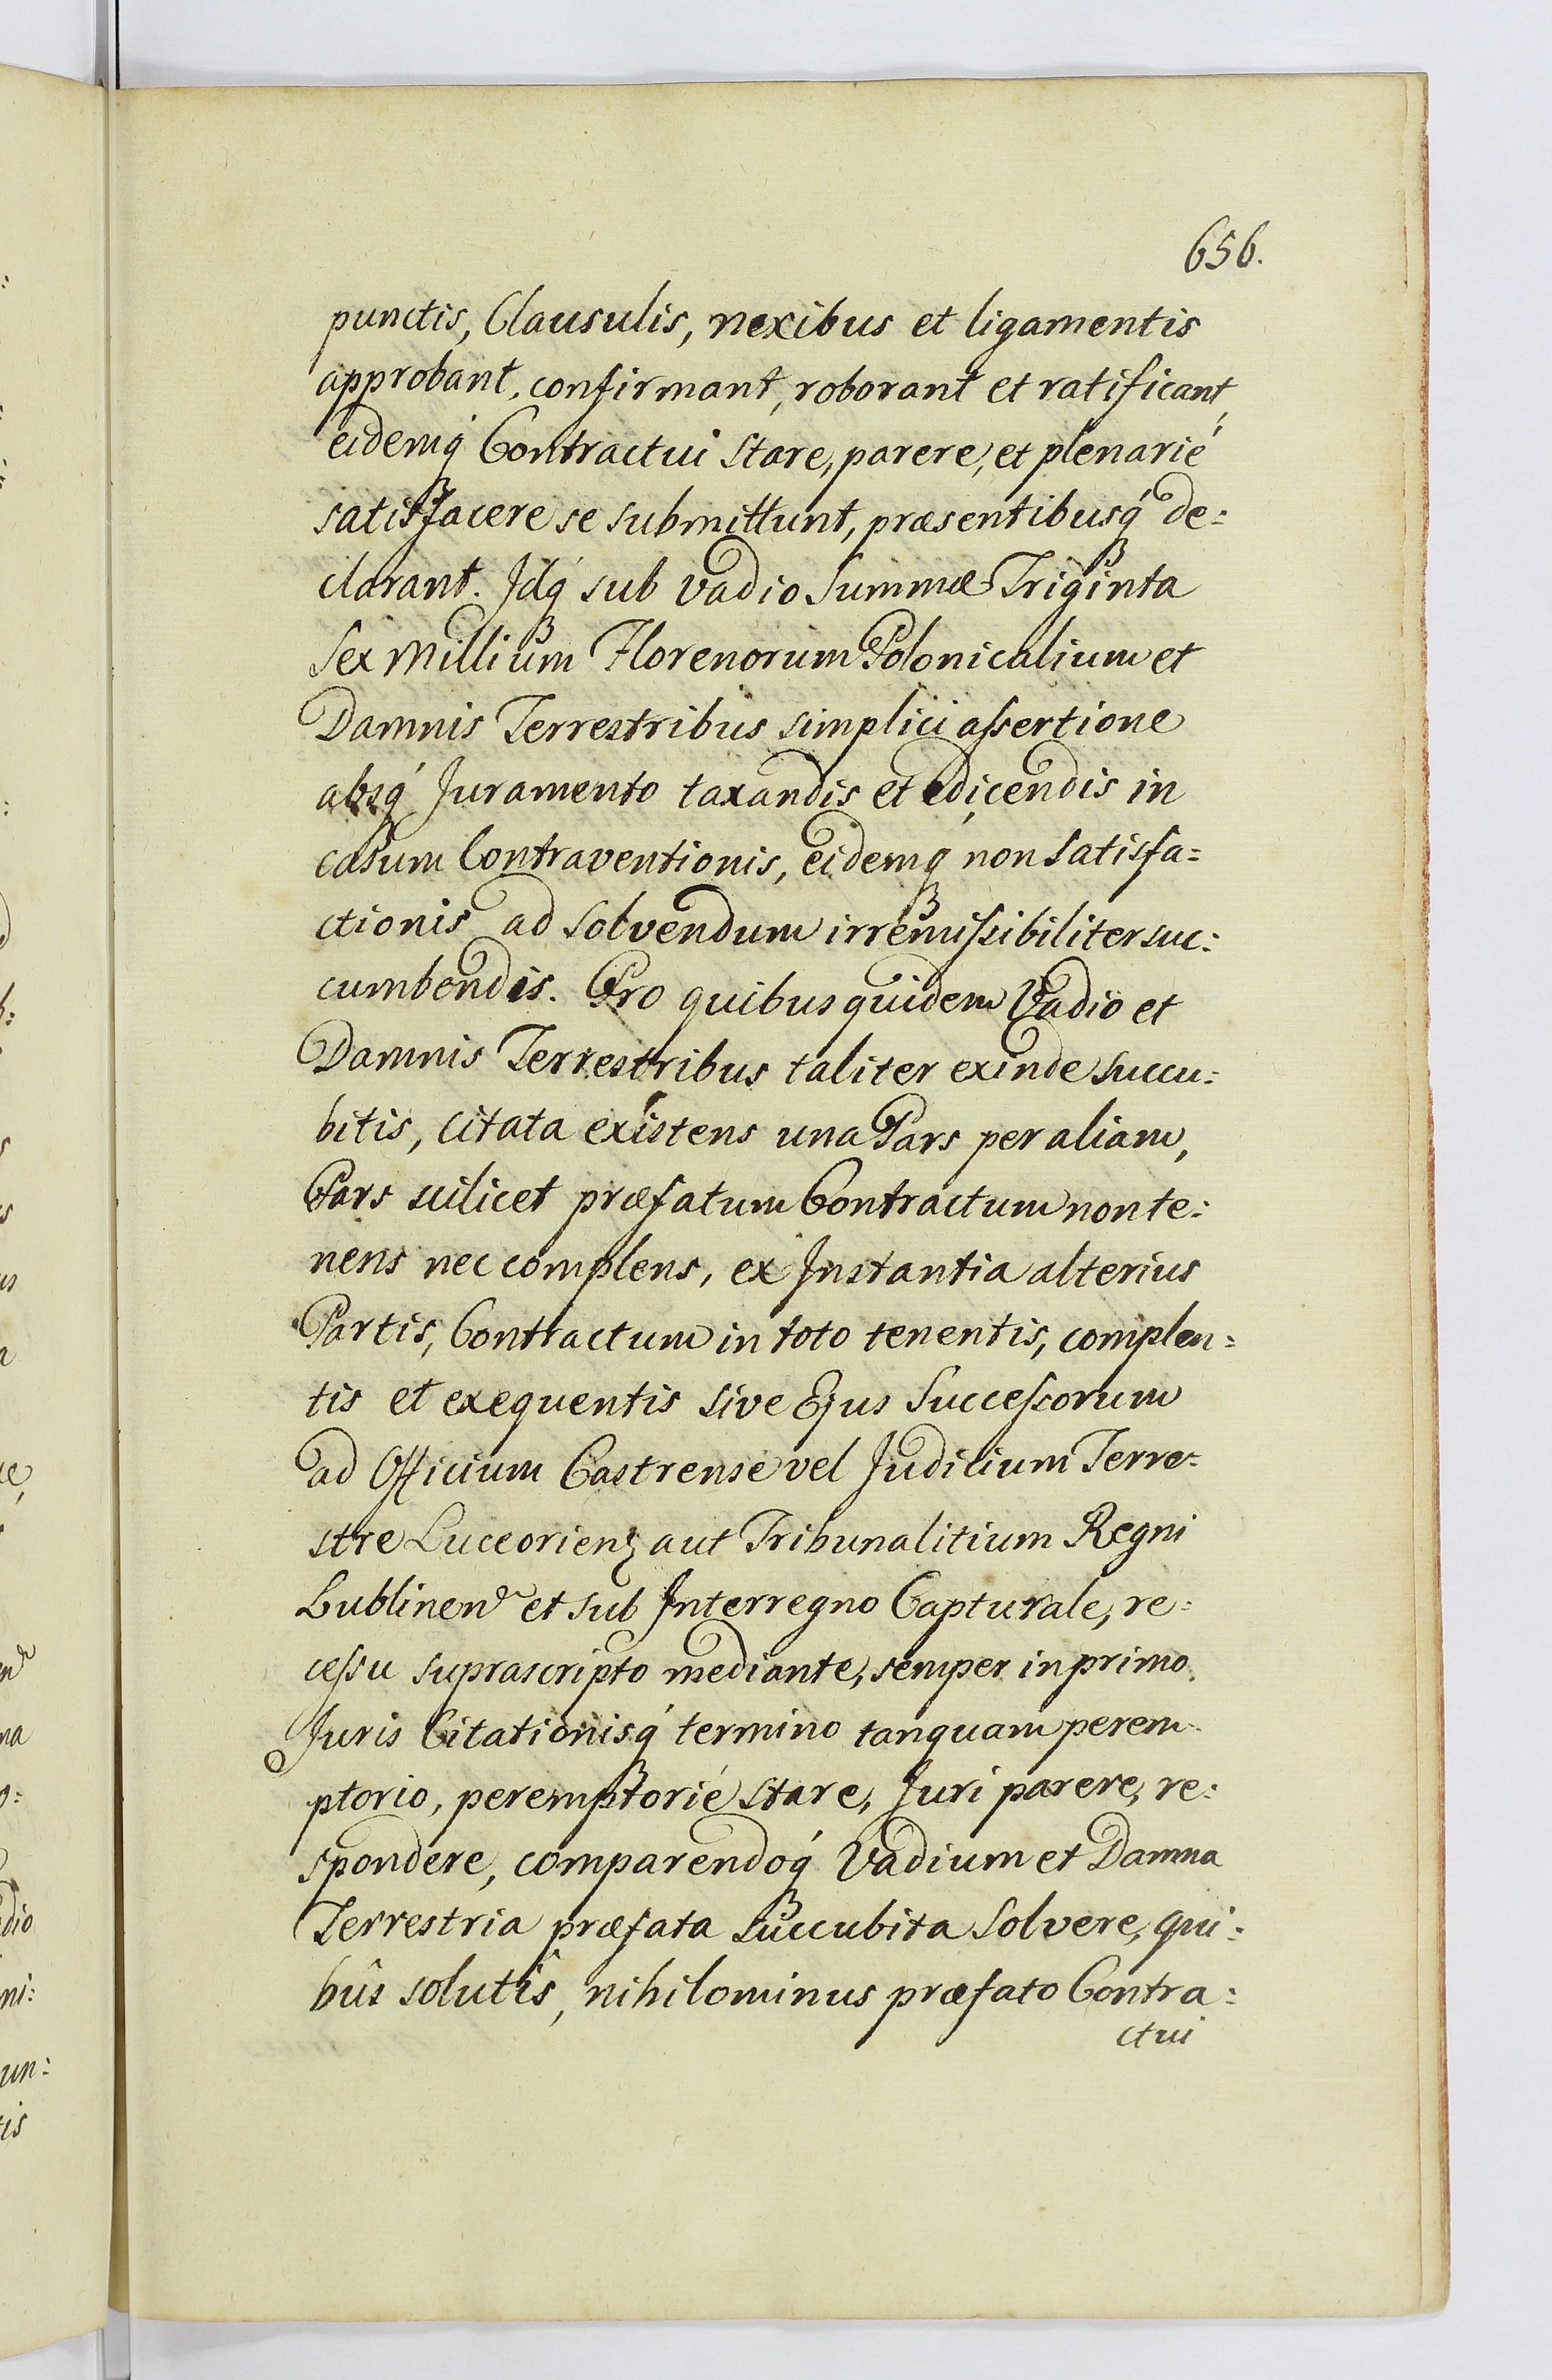 656.
punctis, Clausulis, nexibus et ligamentis
approbant, confirmant, roborant et ratificant,
eidemq́ Contractui stare, parere, et plenarié
satisfacere se submittunt, præsentibusq́ de:
clarant. Idq́ sub vadio Summæ Triginta
Sex Millium Florenorum Polonicalium et
Damnis Terrestribus simplici assertione
absq́ Juramento taxandis et edicendis in
casum Contraventionis, eidemq́ non satisfa=
ctionis ad solvendum irremissibiliter suc:
cumbendis. Pro quibus quidem Vadio et
Damnis Terrestribus taliter exinde succu:
bitis, citata existens una Pars per aliam,
Pars scilicet præfatum Contractum non te:
nens nec complens, ex Instantia alterius
Partis, Contractum in toto tenentis, complen:
tis et exequentis sive Ejus Successorum
ad Officium Castrense vel Judicium Terre=
stre Luceorienȝ aut Tribunalitium Regni
Lublinen̄ et sub Interregno Capturale, re:
cessu suprascripto mediante, semper in primo
Juris Citationisq́ termino tanquam perem:
ptorio, peremptorié stare, Juri parere, re:
spondere, comparendoq́ Vadium et Damna
Terrestria præfata succubita solvere, qui:
bûs solutîs, nihilominus præfato Contra:
ctui